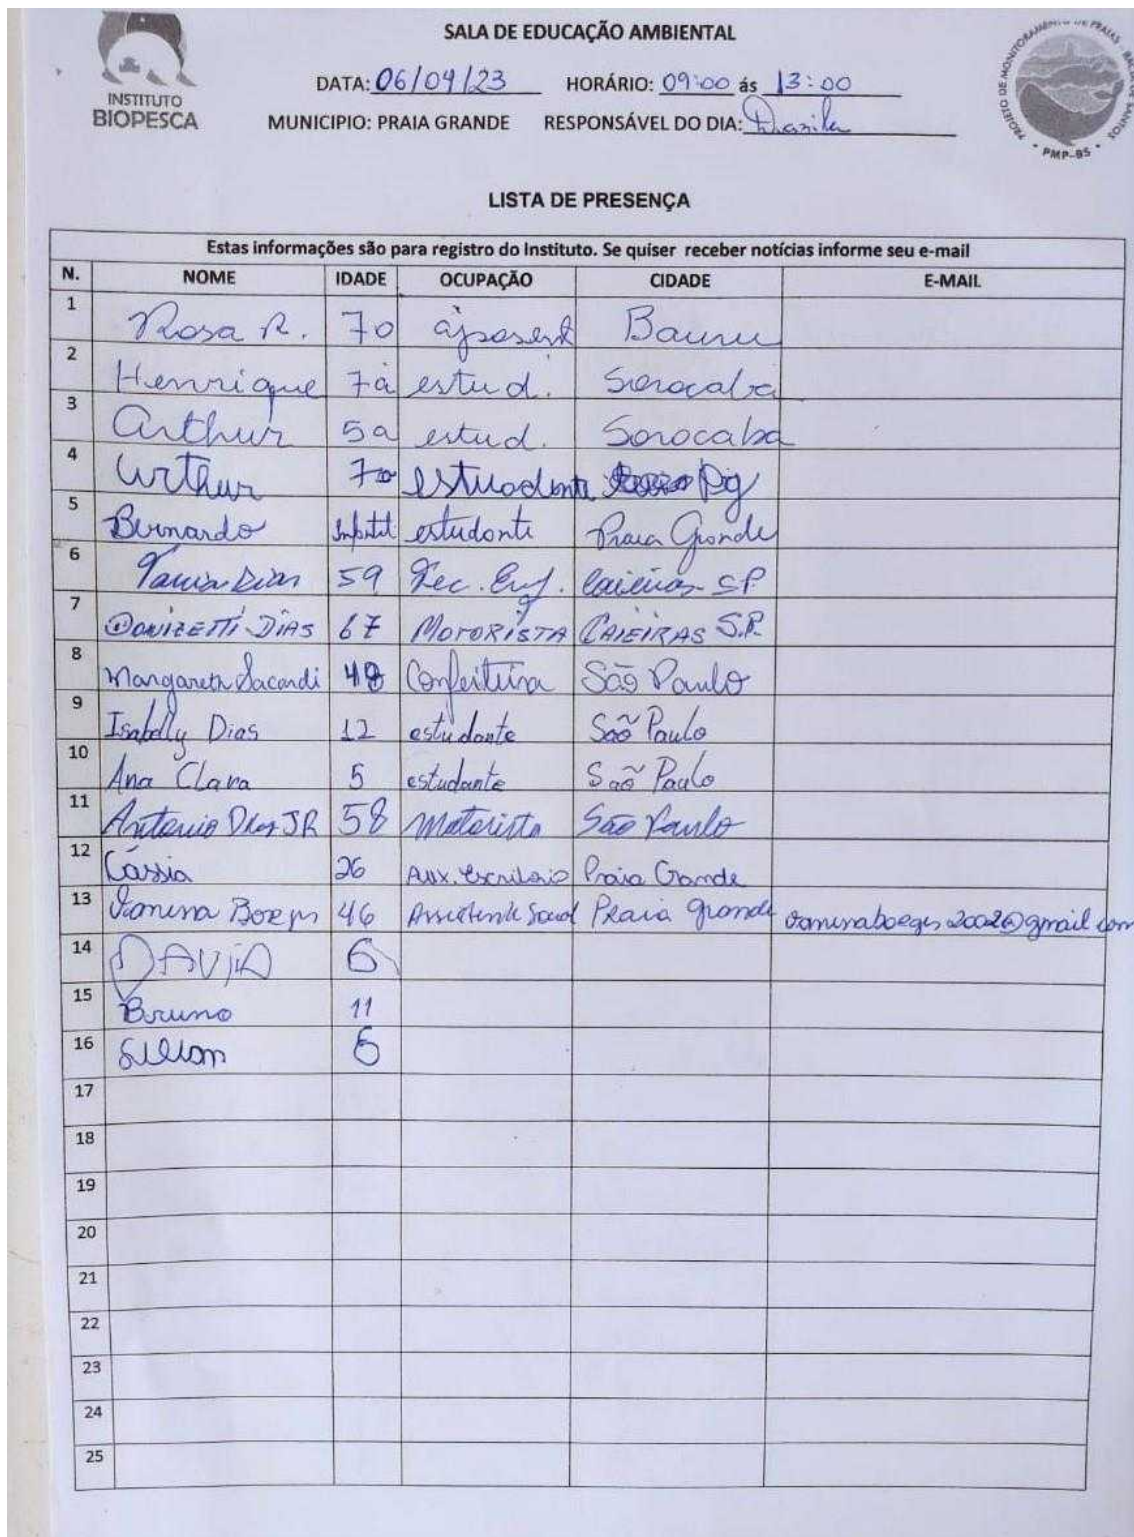 SALA DE EDUCAÇÃO AMBIENTAL
INSTITUTO
BIOPESCA
DATA: 06/04/23 HORÁRIO: 09:00 ás 13:00
MUNICIPIO: PRAIA GRANDE RESPONSÁVEL DO DIA:
PROJETO DE MONITORAMENTO DE PRAIAS BACIA DE SANTOS
• PMP-BS •
LISTA DE PRESENÇA
Estas informações são para registro do Instituto. Se quiser receber notícias informe seu e-mail
N. NOME IDADE OCUPAÇÃO CIDADE E-MAIL
1 Rosa R. 70 aposent Bauru
2 Henrique 7a estud. Sorocaba
3 Arthur 5a estud. Sorocaba
4 Arthur 7 estudante Pg
5 Bernardo estudante Praia Grande
6 Tania Dias 59 Tec. Enf. Caieiras SP
7 DONIZETTI DIAS 67 MOTORISTA CAIEIRAS S.P.
8 Margareth 48 Confeiteira São Paulo
9 Isabelly Dias 12 estudante São Paulo
10 Ana Clara 5 estudante São Paulo
11 Antonio Dias JR 58 Motorista São Paulo
12 Cássia 26 Aux. Escritorio Praia Grande
13 46 Assistente Social Praia grande
14 DAVID 6
15 Bruno 11
16 6
17
18
19
20
21
22
23
24
25